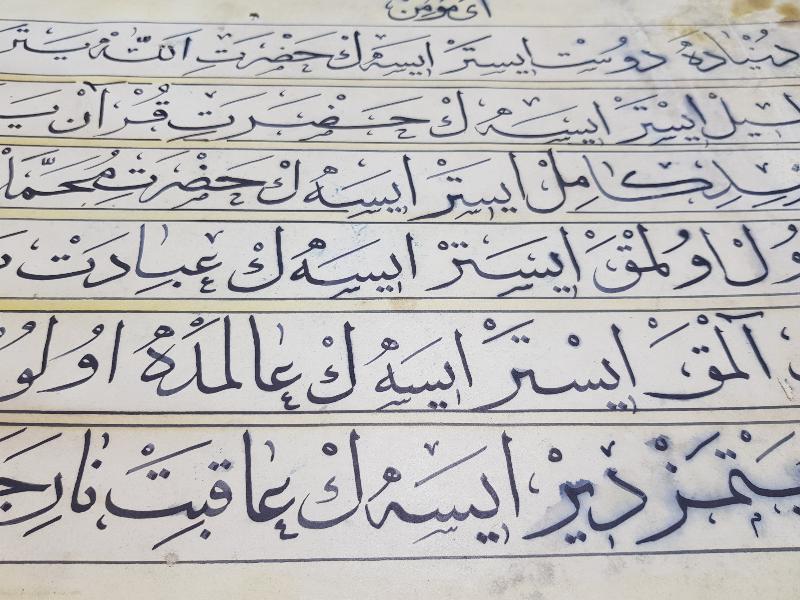 ای مؤمن
دنیاده دوست ایستر ایسه ڭ حضرت الله یتر
دلیل ایستر ایسه ڭ حضرت قرآن
کامل ایستر ایسه ڭ حضرت محمد
قول اولمق ایستر ایسه ڭ عبادت
آلمق ایستر ایسه ڭ عالمده اولو
یتمز دیر ایسه ڭ عاقبت نار